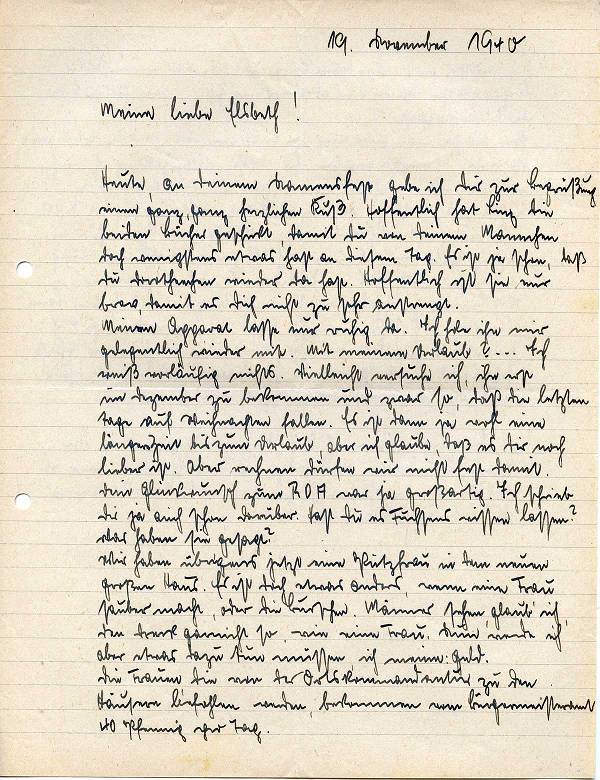 19. November 1940
Meine liebe Elsbeth!
Heute, an Deinem Namensfest gebe ich Dir zur Begrüßung
einen ganz, ganz herzlichen Kuß. Hoffentlich hat die
beiden Bücher geschickt, damit Du von Deinem Mannchen
doch wenigstens etwas hast an diesem Tag. Es ist ja schön, daß
Du wieder da hast. Hoffentlich ist sie nur
brav, damit es Dich nicht zu sehr anstrengt.
Meinen Apparat lasse nur ruhig da. Ich hole ihn mir
gelegentlich wieder mit. Mit meinem Urlaub ?... Ich
weiß vorläufig nichts. Vielleicht versuche ich, ihn erst
im Dezember zu bekommen und zwar so, daß die letzten
Tage auf Weihnachten fallen. Es ist dann ja wohl eine
längere Zeit bis zum Urlaub, aber ich glaube, daß es Dir noch
lieber ist. Aber rechnen dürfen wir nicht fest damit.
Dein Glückwunsch zum ROA war ja großartig. Ich schrieb
Dir ja auch schon darüber. Hast Du es Fuchsens wissen lassen?
Was haben sie gesagt?
Wir haben übrigens jetzt eine Putzfrau in dem neuen
großen Haus. Es ist doch etwas anders, wenn eine Frau
sauber macht, oder die Burschen. Männer sehen, glaub' ich,
den Dreck garnicht so, wie eine Frau. Nun werde ich
aber etwas dazu tun müssen, ich meine: Geld.
Die Frauen die von der Ortskommandantur zu den
Häusern befohlen werden, bekommen vom Bürgermeisteramt
40 Pfennig per Tag.